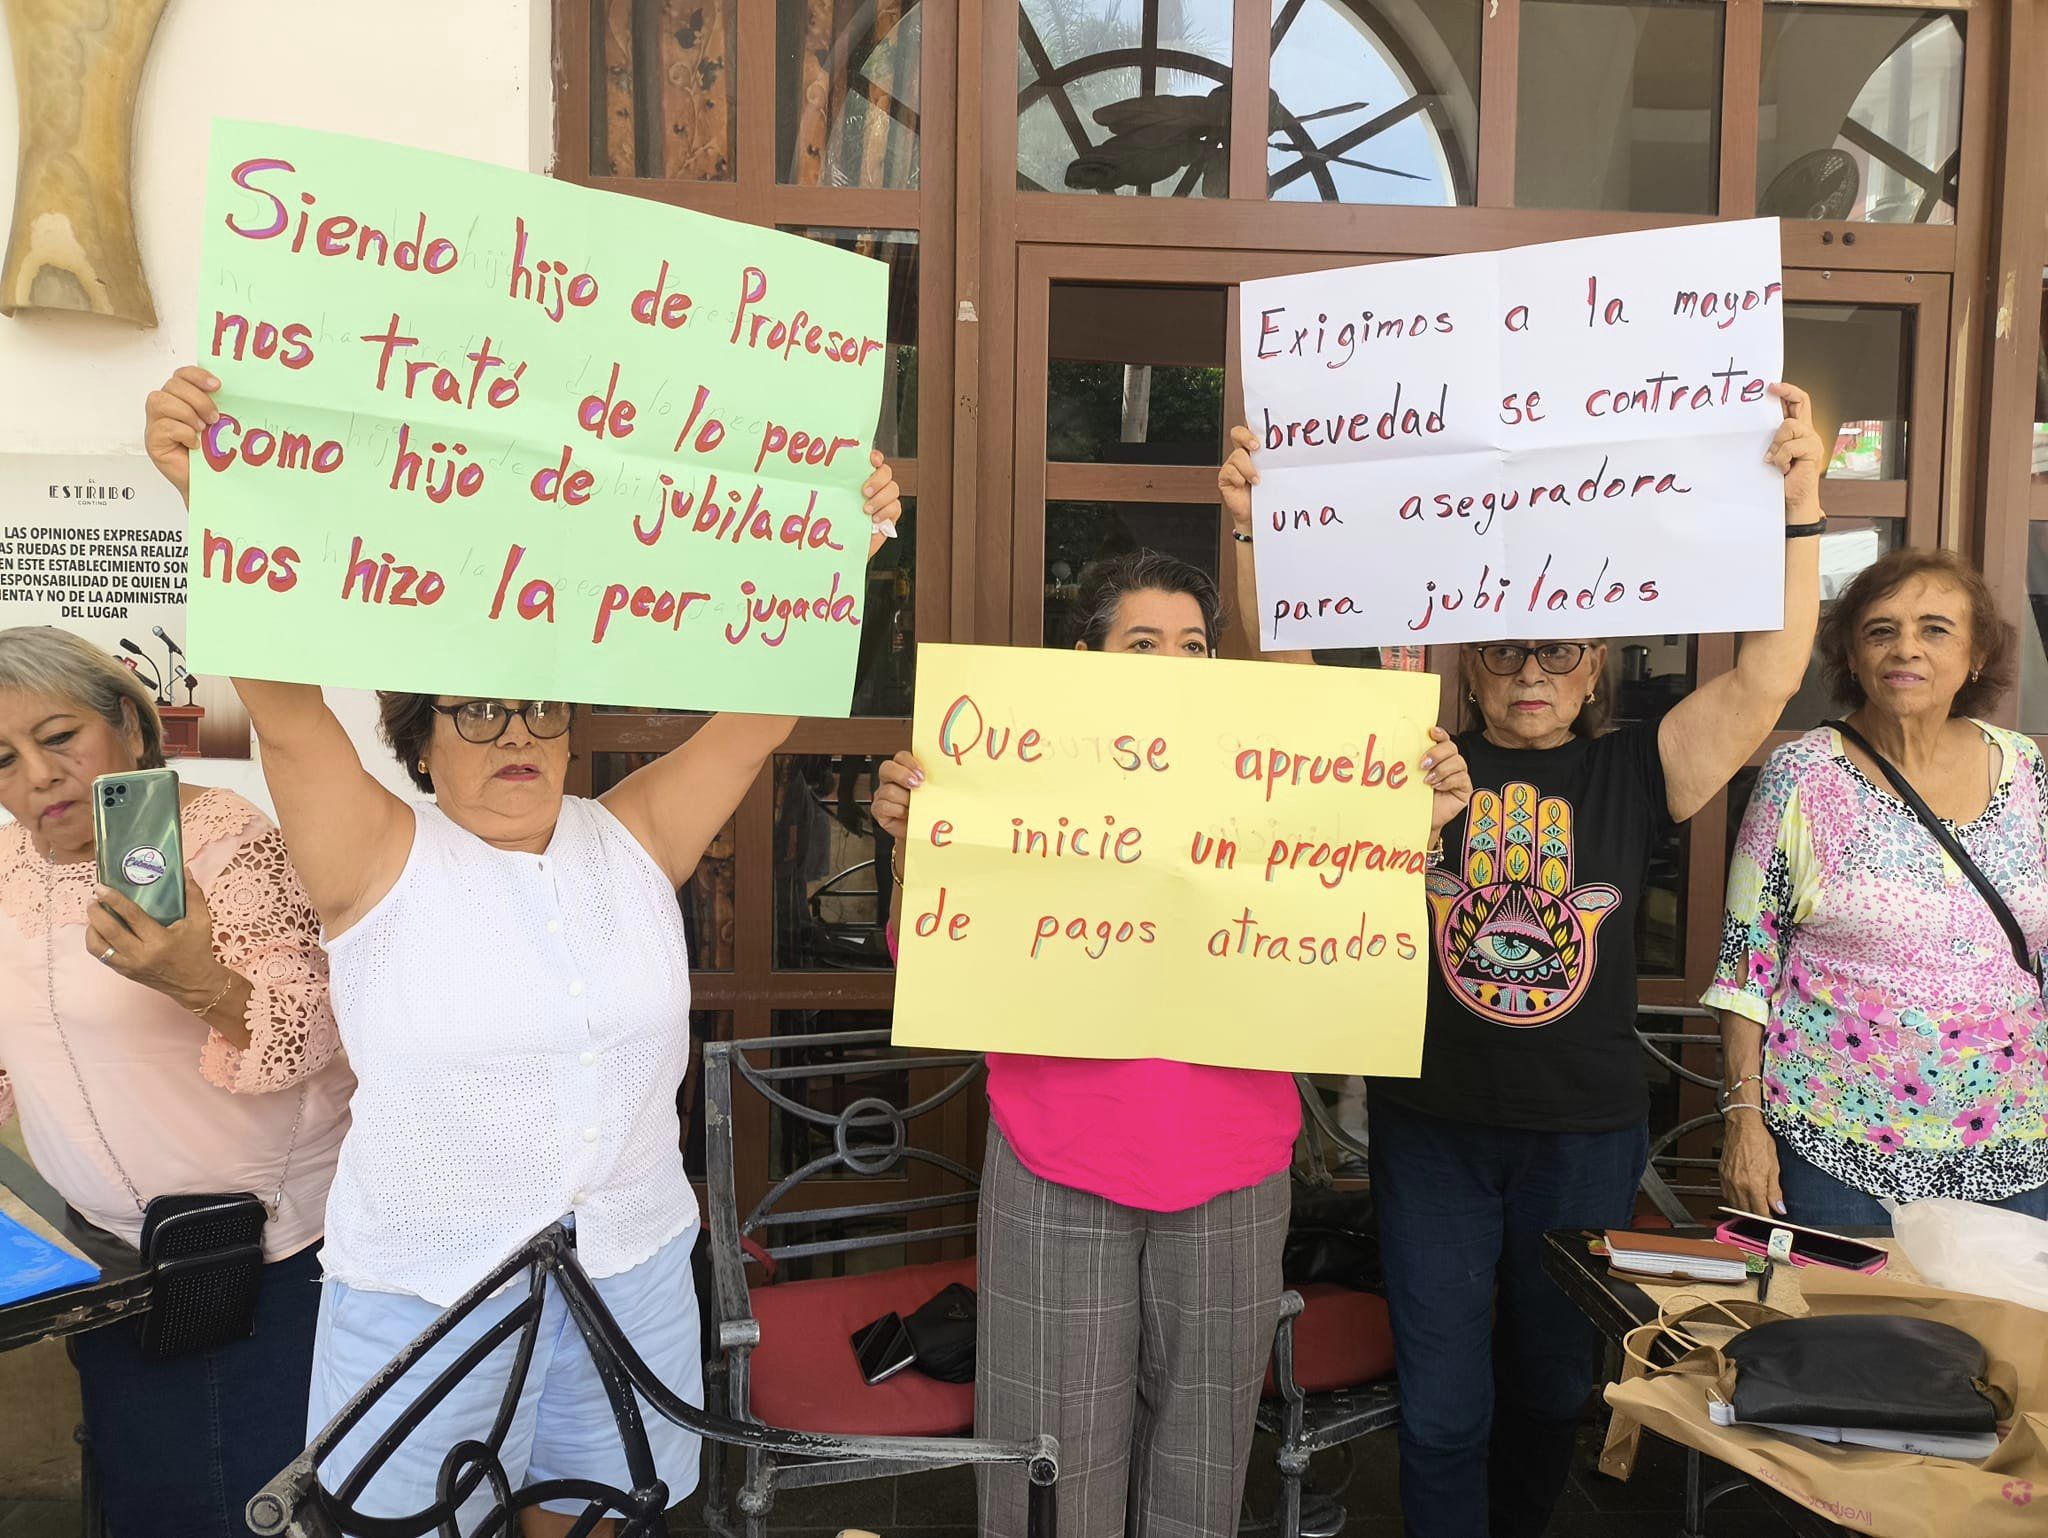 Siendo hijo de Profesor
nos trató de lo peor
como hijo de jubilada
nos hizo la peor jugada
Exigimos a la mayor
brevedad se contrate
una aseguradora
para jubilados
Que se apruebe
e inicie un programa
de pagos atrasados
EL
ESTRIBO
CONTINO
LAS OPINIONES EXPRESADAS
AS RUEDAS DE PRENSA REALIZA
EN ESTE ESTABLECIMIENTO SON
ESPONSABILIDAD DE QUIEN LA
ENTA Y NO DE LA ADMINISTRAC
DEL LUGAR